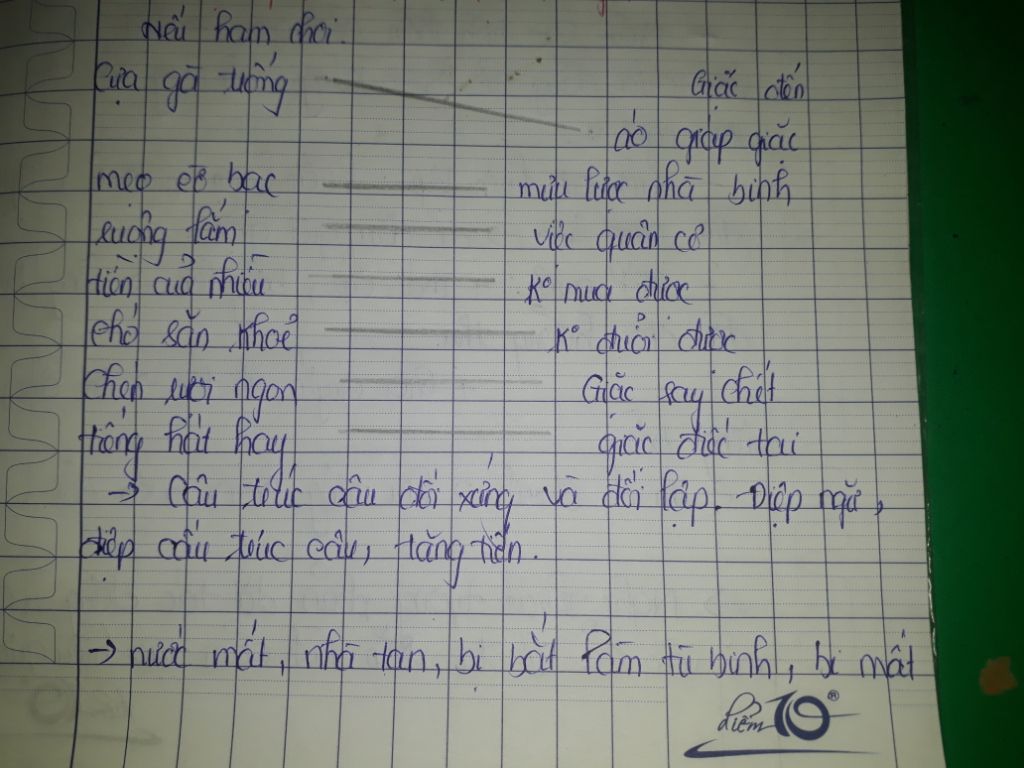 Nếu ham chơi.
Cựa gà trống Giặc đến
áo giáp giặc
mẹo cờ bạc mưu lược nhà binh
ruộng lắm việc quân cơ
tiền của nhiều K° mua được
chó săn khoẻ K° đuổi được
Chén rượi ngon Giặc say chết
tiếng hát hay giặc điếc tai
→ Câu trúc câu đối xứng và đối lập. Điệp ngữ,
điệp cấu trúc câu, tăng tiến.
→ nước mất, nhà tan, bị bắt làm tù binh, bị mất
điểm 10®